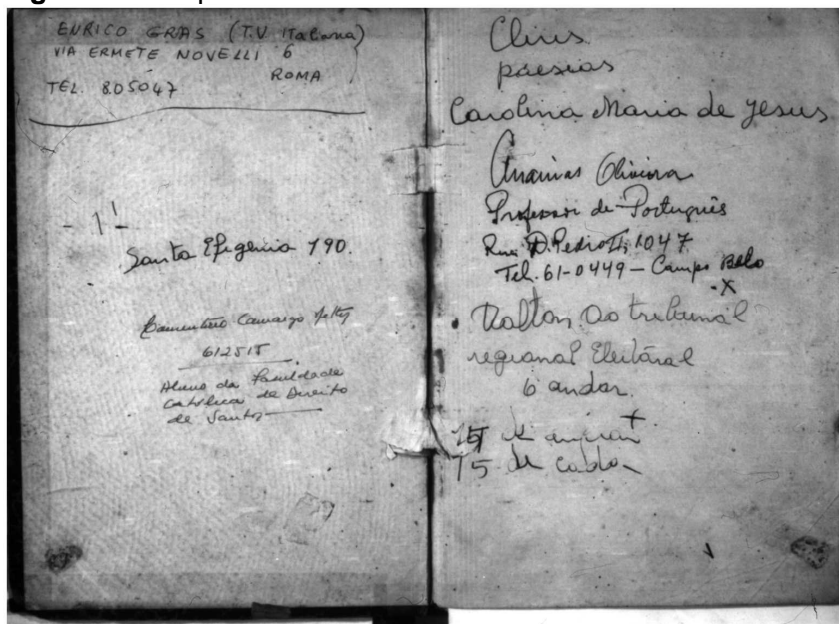 ENRICO GRAS (T.V. ITaliana)
VIA ERMETE NOVELLI 6
ROMA
TEL. 805047
Santa Efigenia 190.
Camargo
612515
Aluno da Faculdade
Católica de Direito
de Santos
Cliris
poesias
Carolina Maria de Jesus
Oliveira
Professor de Português
Rua D. Pedro II, 1047
Tel. 61-0449 - Campo Belo
X
Dalton ao tribunal
regional Eleitoral
6 andar.
15
75 de